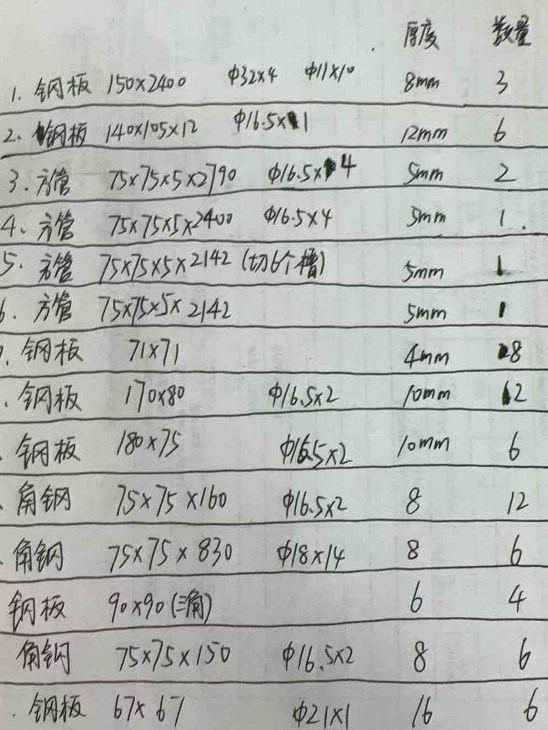 厚度 数量
1. 钢板 150×2400 Φ32×4 Φ11×10 8mm 3
2. 钢板 140×105×12 Φ16.5×1 12mm 6
3. 方管 75×75×5×2790 Φ16.5×4 5mm 2
4. 方管 75×75×5×2400 Φ16.5×4 5mm 1.
5. 方管 75×75×5×2142 (切6个槽) 5mm 1
6. 方管 75×75×5×2142 5mm 1
钢板 71×71 4mm 8
. 钢板 170×80 Φ16.5×2 10mm 12
. 钢板 180×75 Φ16.5×2 10mm 6
角钢 75×75×160 Φ16.5×2 8 12
角钢 75×75×830 Φ18×14 8 6
钢板 90×90 (三角) 6 4
角钢 75×75×150 Φ16.5×2 8 6
. 钢板 67×67 Φ21×1 16 6